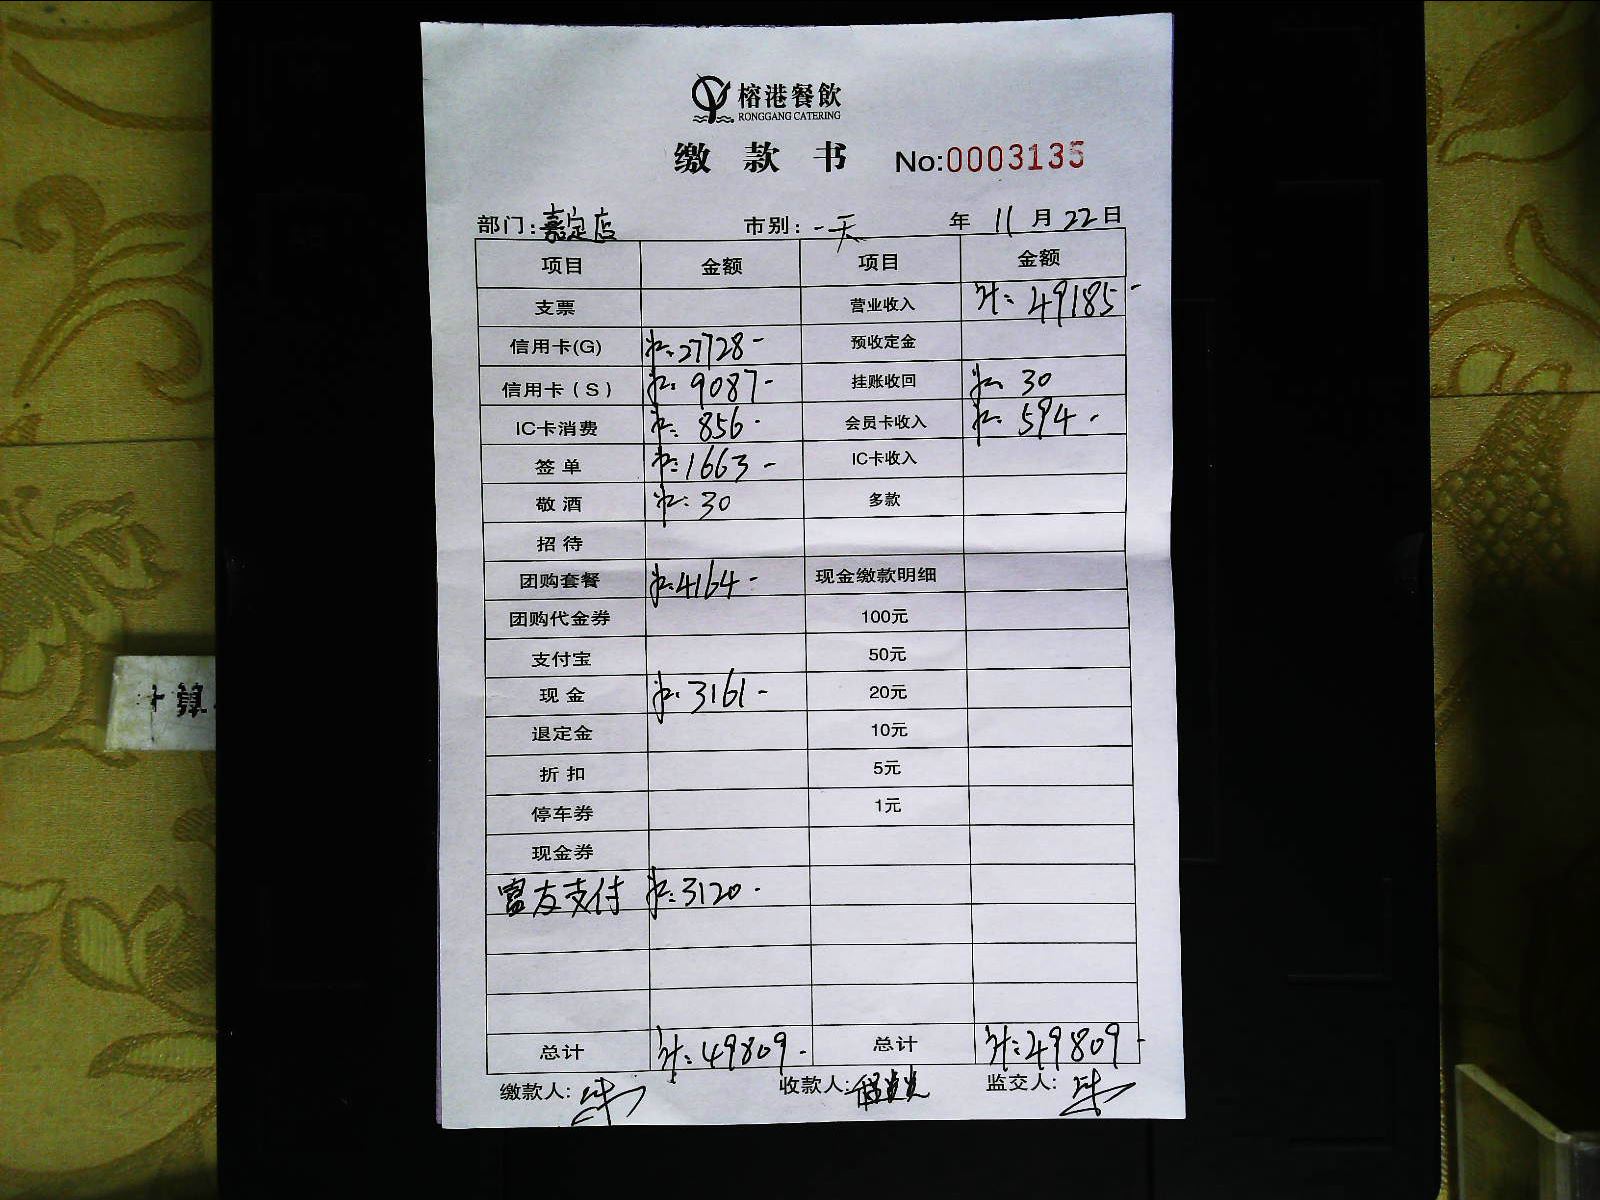 榕港餐飲
RONGGANG CATERING
缴款书 No:0003135
部门:嘉定店 市别:一天 年 11 月 22 日
项目 金额 项目 金额
支票 营业收入 计: 49185-
信用卡(G) 计: 27728- 预收定金
信用卡(S) 计: 9087- 挂账收回 计: 30
IC卡消费 计: 856- 会员卡收入 计: 594-
签单 计: 1663- IC卡收入
敬酒 计: 30 多款
招待
团购套餐 计: 4164- 现金缴款明细
团购代金券 100元
支付宝 50元
现金 计: 3161- 20元
退定金 10元
折扣 5元
停车券 1元
现金券
富友支付 计: 3120-
总计 计: 49809- 总计 计: 49809-
缴款人: 收款人: 监交人: